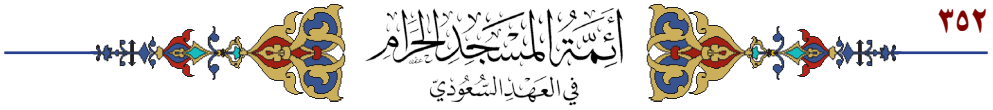 ٣٥٢
أَئِمَّةُ المَسْجِدِ الحَرَامِ
فِي العَهْدِ السُّعُودِيِّ